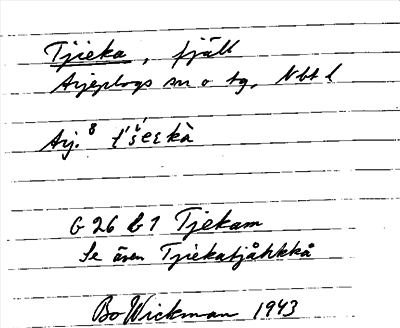 Tjieka, fjäll
Arjeplogs sn o tg, Nbt l
Arj. 8 t'šeɛkà
G 26 b 1 Tjekam
Se även Tjiekatjåhkkå
Bo Wickman 1943